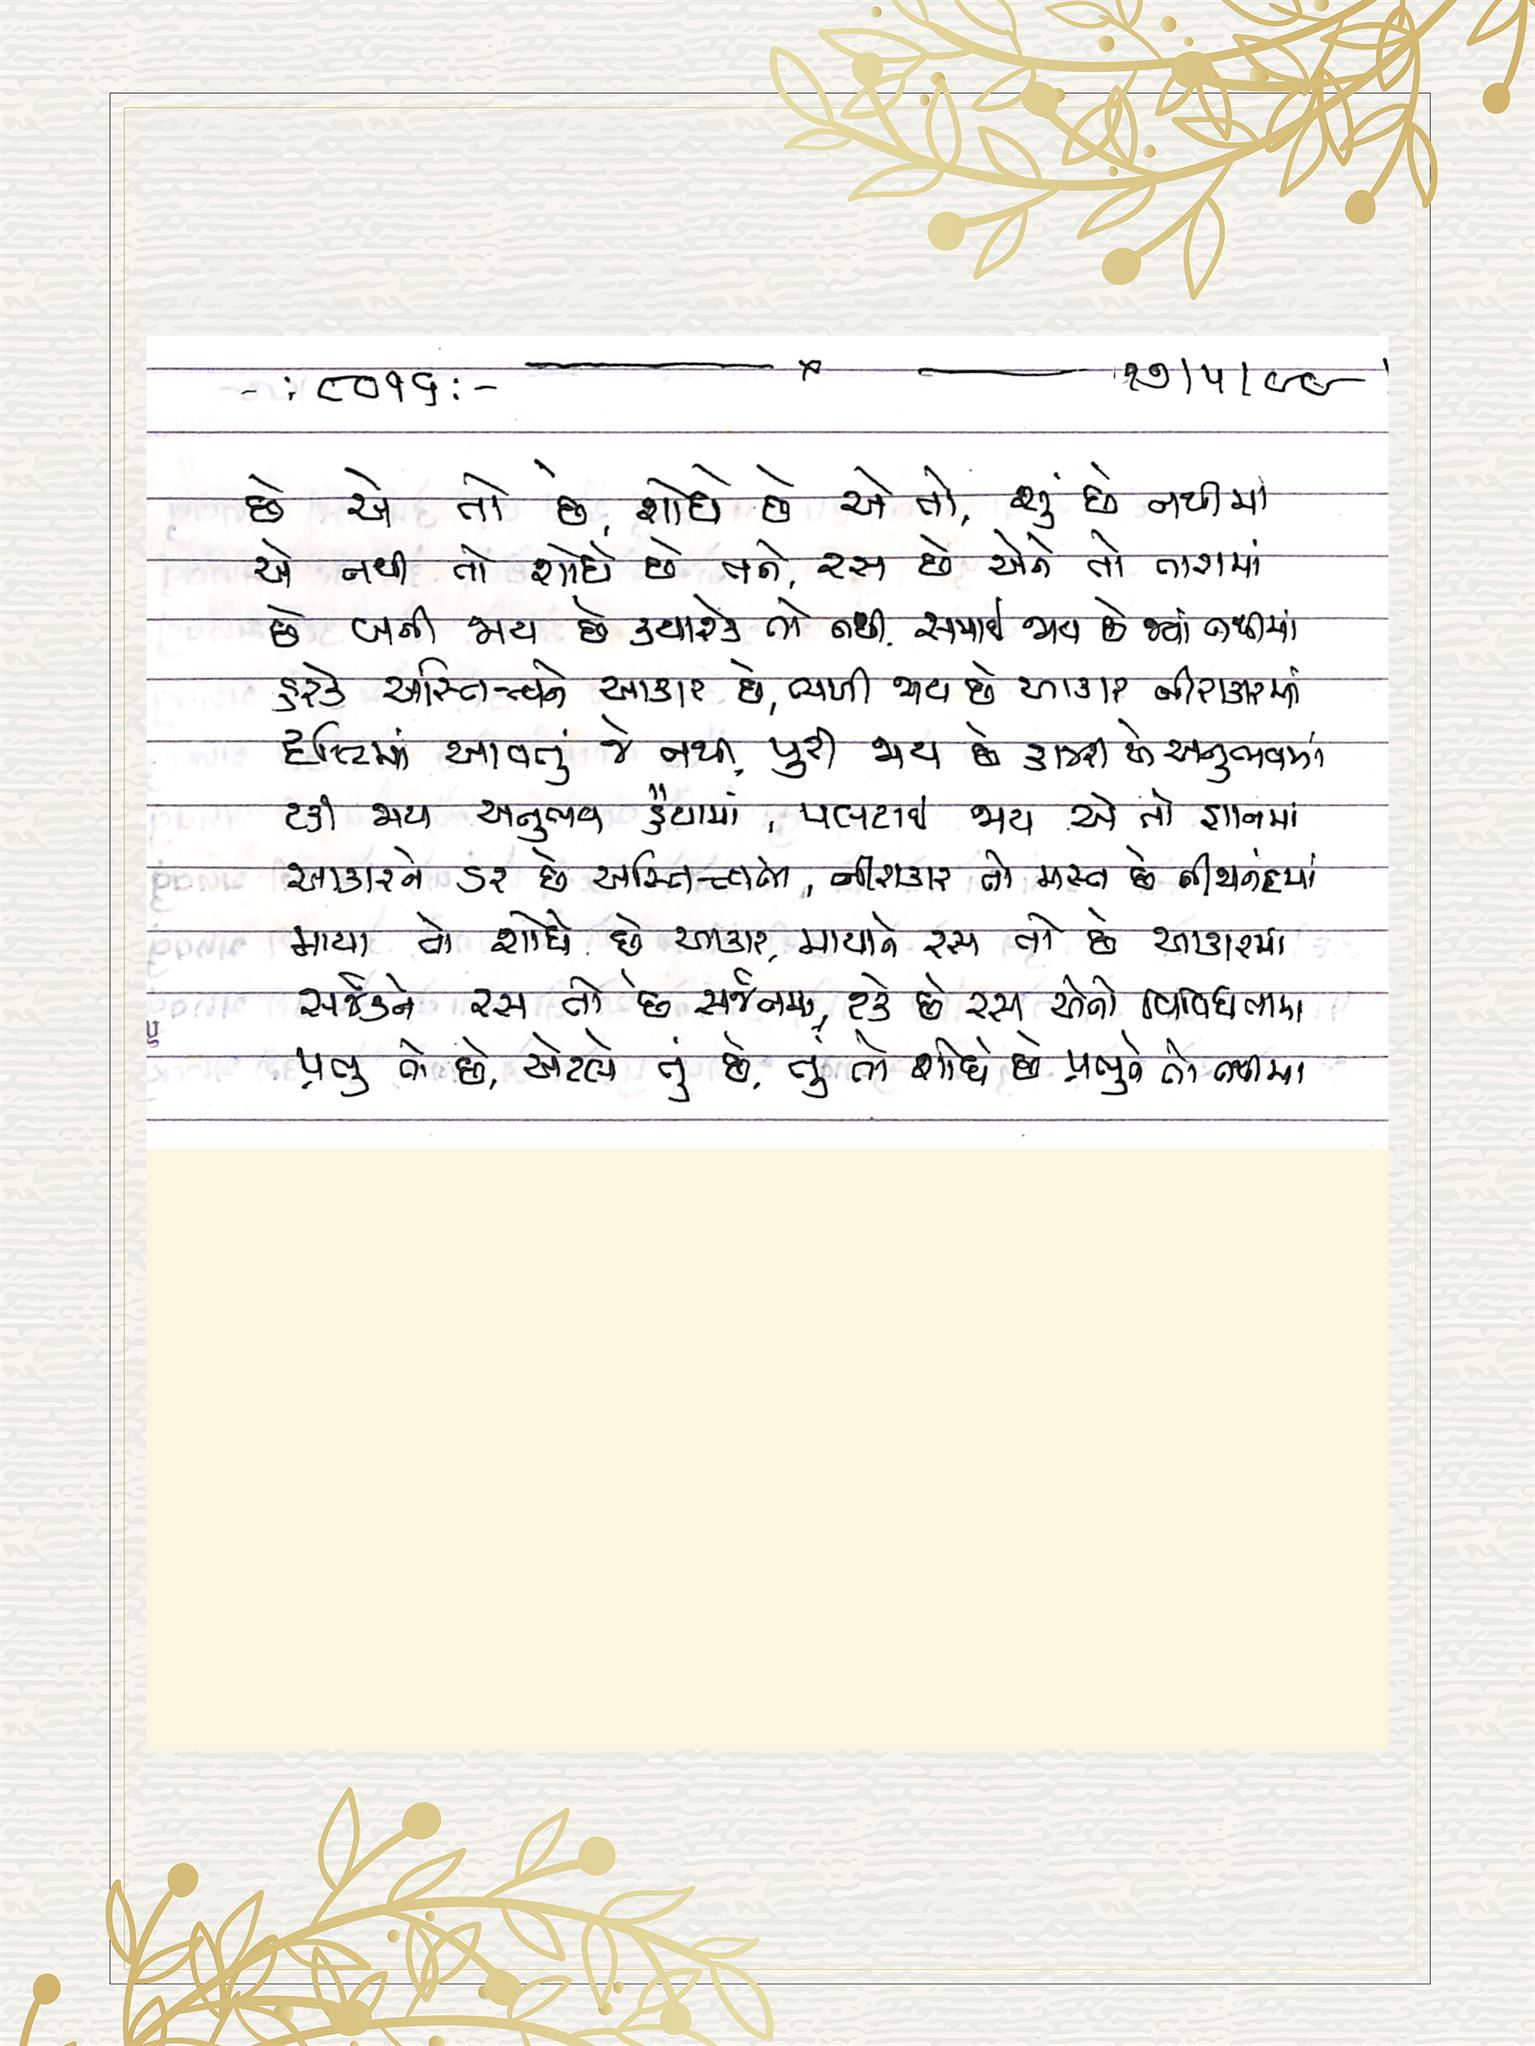 -: ૮૦૧૬ :- ૨૭/૫/૯૯
છે એ તો છે, શોધે છે એ તો, શું છે નથીમાં
એ નથી તો શોધે છે તને, રસ છે એને તો નાશમાં
છે બની જાય છે ક્યારેક તો નથી. સમાઈ જાય છે જ્યાં નથીમાં
હરેક અસ્તિત્ત્વને આકાર છે, મળી જાય છે આકાર નીરાકારમાં
દૃષ્ટિમાં આવતું જે નથી, પુરી જાય છે હાજરી એ અનુભવમાં
ટકી જાય અનુભવ હૈયામાં, પલટાઈ જાય એ તો જ્ઞાનમાં
આકારને ડર છે અસ્તિત્ત્વનો, નીરાકાર તો મસ્ત છે નીજાનંદમાં
માયા તો શોધે છે આકાર, માયાને રસ તો છે આકારમાં
સર્જકને રસ તો છે સર્જનમાં, ટકે છે રસ એનો વિવિધતામાં
પ્રભુ તો છે, એટલે તું છે, તું તો શોધે છે પ્રભુને તો નથીમાં